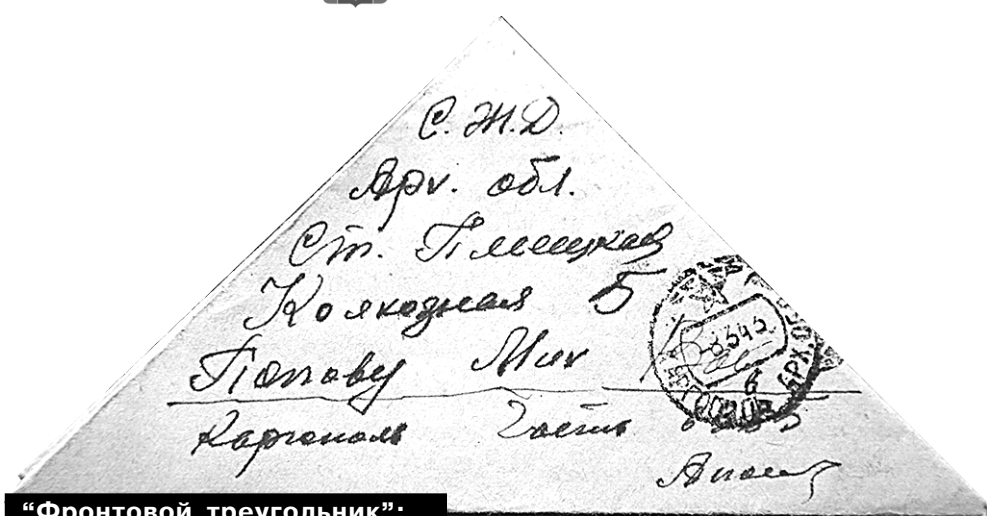 С. Ж. Д.
Арх. обл.
Ст. Плесецкая
Колхозная 5
Попову Мих
Каргополь Часть
8 3 43
КАРГОПОЛЬ АРХ. ОБ
“Фронтовой треугольник”: